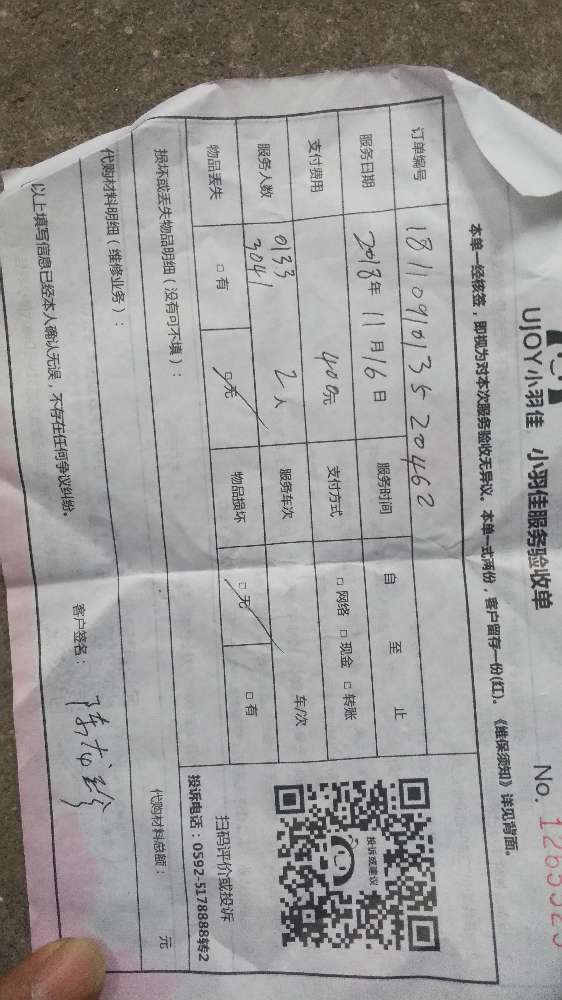 UJOY小羽佳 小羽佳服务验收单
No.
本单一经核签，即视为对本次服务验收无异议。本单一式两份，客户留存一份(红)。《维保须知》详见背面。
订单编号 181109101352046 2
服务日期 2018年 11月16日 服务时间 自 至 止
支付费用 400元 支付方式 □ 网络 □ 现金 □ 转账
服务人数 0133 3041 2人 服务车次 车/次
物品丢失 □ 有 □ 无 物品损坏 □ 无 □ 有
投诉或建议
扫码评价或投诉
投诉电话：0592-5178888转2
损坏或丢失物品明细（没有可不填）：
代购材料明细（维修业务）：
代购材料总额： 元
以上填写信息已经本人确认无误，不存在任何争议纠纷。 客户签名：